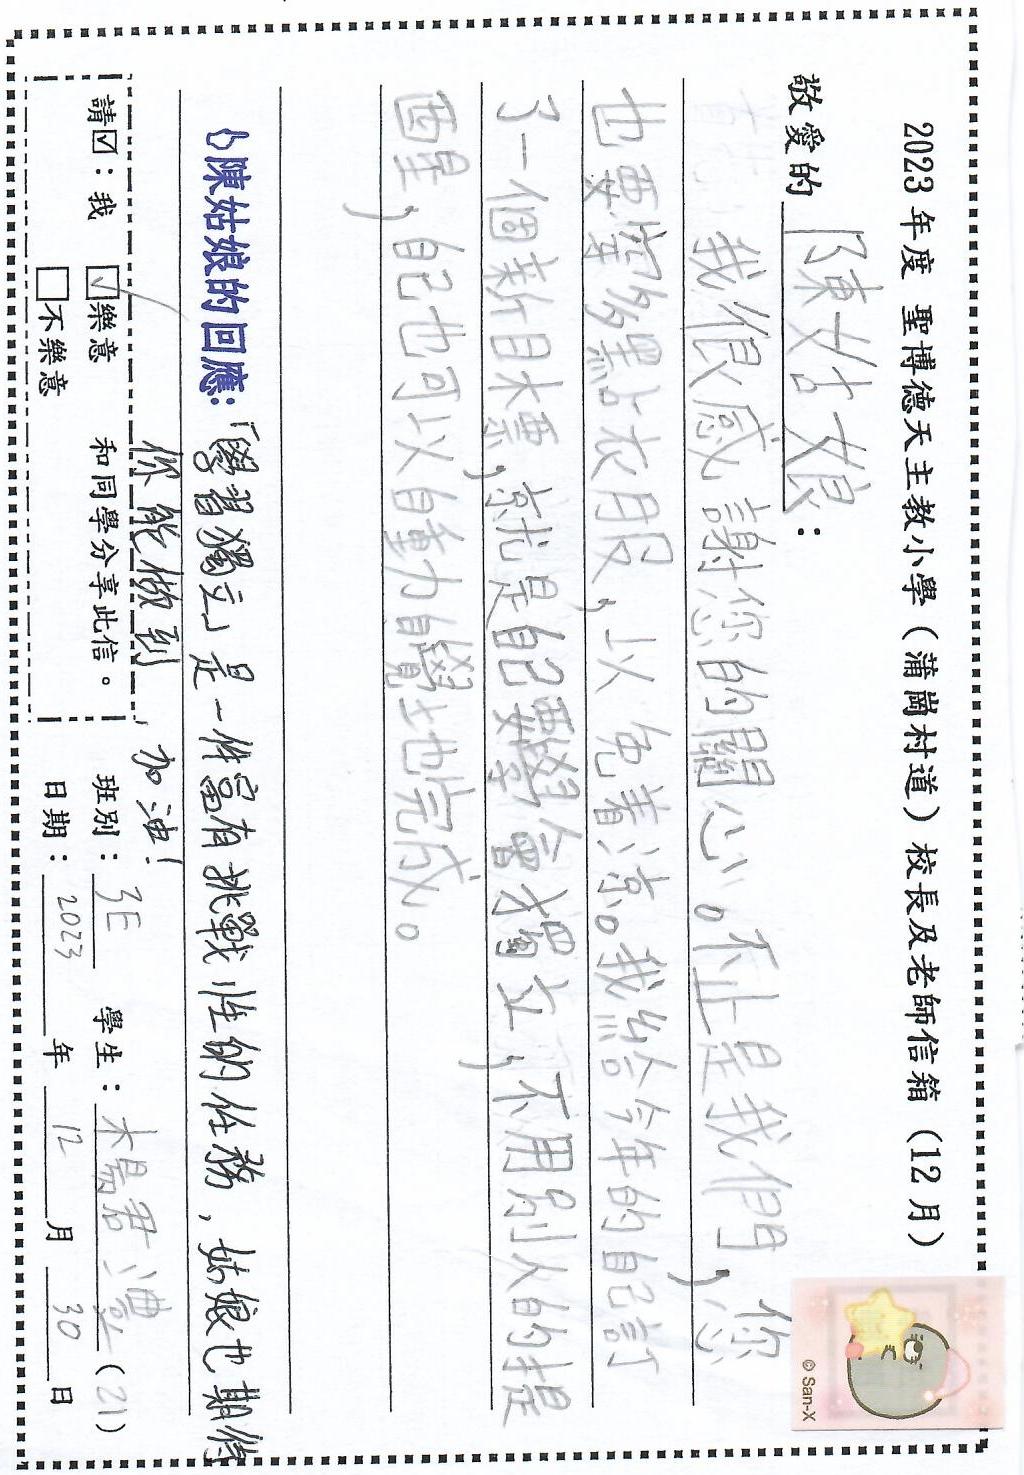 2023 年度 聖博德天主教小學（蒲崗村道）校長及老師信箱（12 月）
敬愛的 陳姑娘：
我很感謝您的關心。不止是我們，您
也要穿多點衣服，以免着涼。我給今年的自己訂
了一個新目標，就是自己要學會獨立，不用別人的提
醒，自己也可以自動自覺地完成。
陳姑娘的回應：「學習獨立」是一件富有挑戰性的任務，姑娘也期待
你能做到，加油！
請☑：我 ☑樂意 和同學分享此信。
□不樂意
班別：3E 學生：楊君灃（21）
日期：2023 年 12 月 30 日
© San-X